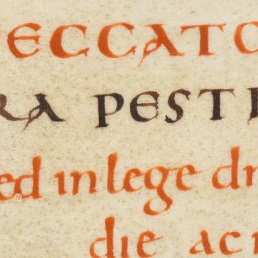 ECCATO
RA PESTI
ed in lege dn
die ac